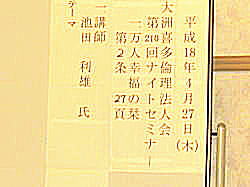 平成18年4月27日(木)
大洲喜多倫理法人会
第218回ナイトセミナー
一万人幸福の栞
第2条 27頁
一講師
池田 利雄 氏
テーマ